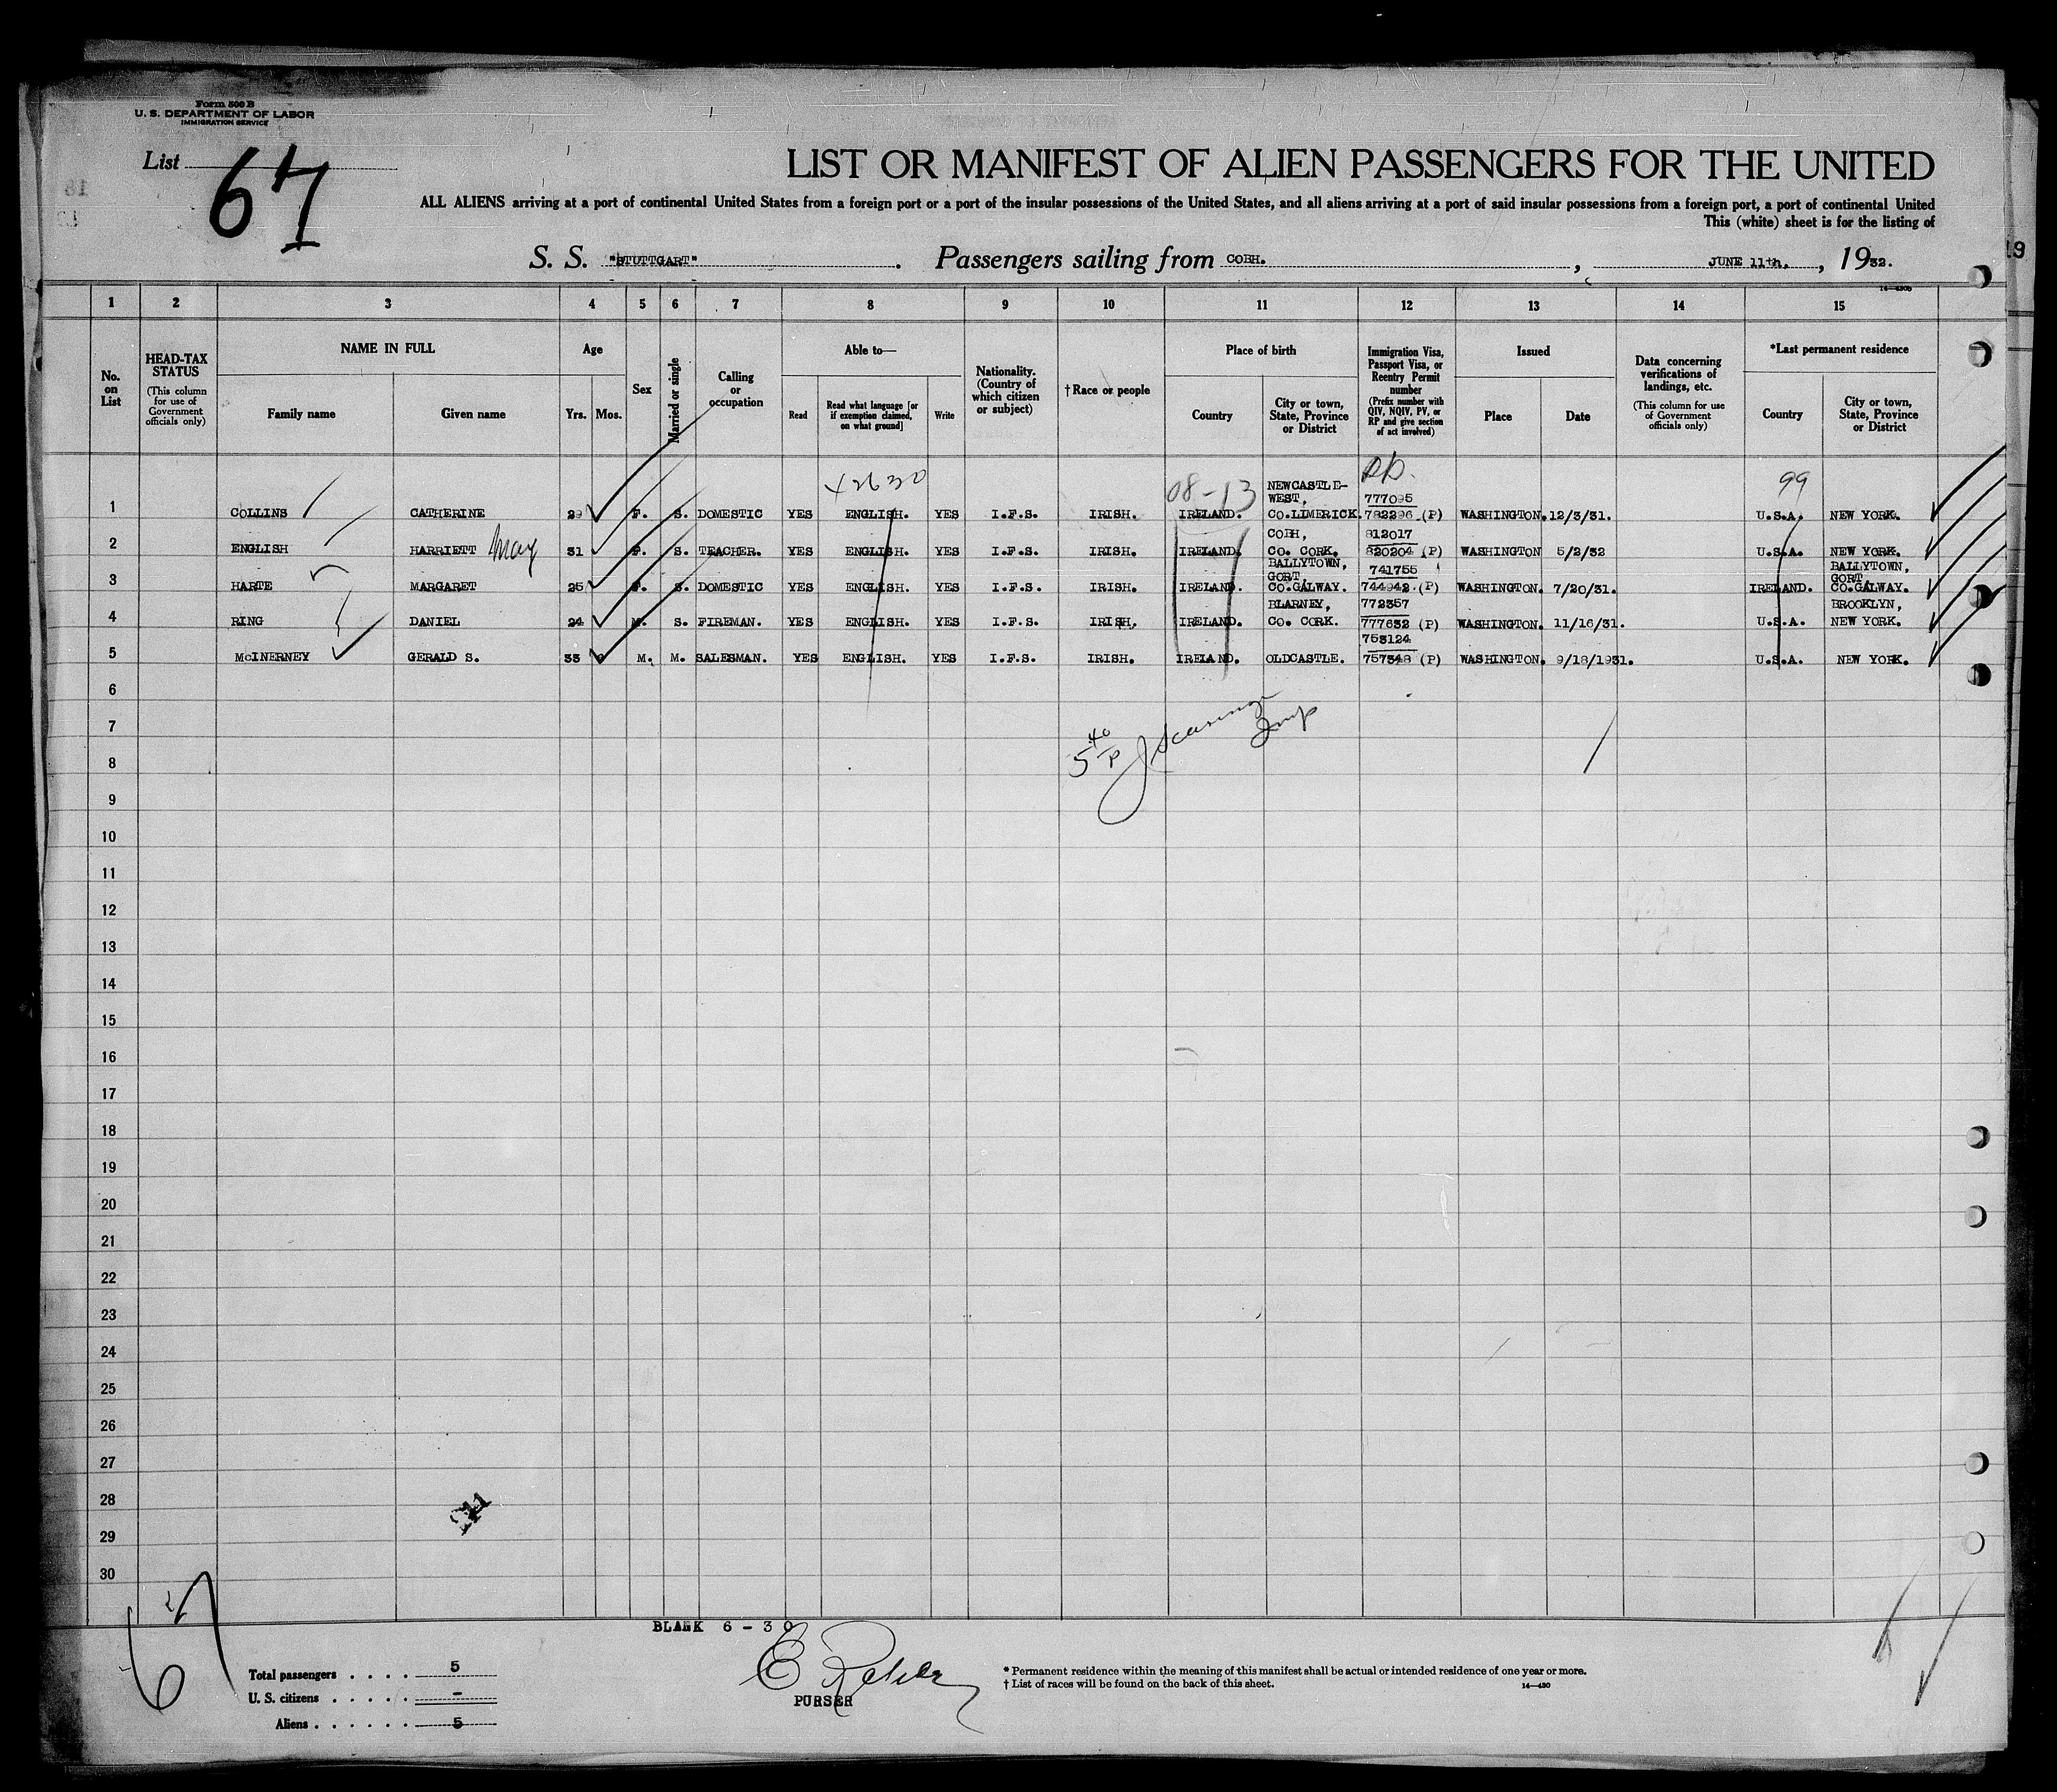 Form 500 B
U. S. DEPARTMENT OF LABOR
IMMIGRATION SERVICE
List 67
LIST OR MANIFEST OF ALIEN PASSENGERS FOR THE UNITED
ALL ALIENS arriving at a port of continental United States from a foreign port or a port of the insular possessions of the United States, and all aliens arriving at a port of said insular possessions from a foreign port, a port of continental United
This (white) sheet is for the listing of
S. S. "STUTTGART". Passengers sailing from COBH. , JUNE 11th, , 1932.
19
1 2 3 4 5 6 7 8 9 10 11 12 13 14 15
No. on List
HEAD-TAX STATUS
(This column for use of Government officials only)
NAME IN FULL
Family name Given name
Age
Yrs. Mos.
Sex
Married or single
Calling or occupation
Able to—
Read Read what language [or if exemption claimed, on what ground] Write
Nationality. (Country of which citizen or subject)
†Race or people
Place of birth
Country City or town, State, Province or District
Immigration Visa, Passport Visa, or Reentry Permit number
(Prefix number with QIV, NQIV, PV, or RP and give section of act involved)
Issued
Place Date
Data concerning verifications of landings, etc.
(This column for use of Government officials only)
*Last permanent residence
Country City or town, State, Province or District
08-13 99
NEWCASTLE-
WEST, 777095
1 COLLINS CATHERINE 29 F. S. DOMESTIC YES ENGLISH. YES I.F.S. IRISH. IRELAND. CO.LIMERICK. 782296 (P) WASHINGTON. 12/3/31. U.S.A. NEW YORK.
COBH, 812017
2 ENGLISH HARRIETT May 31 F. S. TEACHER. YES ENGLISH. YES I.F.S. IRISH. IRELAND. CO. CORK. 820204 (P) WASHINGTON 5/2/32 U.S.A. NEW YORK.
BALLYTOWN, 741755 BALLYTOWN,
GORT, GORT,
3 HARTE MARGARET 25 F. S. DOMESTIC YES ENGLISH. YES I.F.S. IRISH. IRELAND. CO.GALWAY. 744942. (P) WASHINGTON. 7/20/31. IRELAND. CO.GALWAY.
BLARNEY, 772357 BROOKLYN,
4 RING DANIEL 24 M. S. FIREMAN. YES ENGLISH. YES I.F.S. IRISH. IRELAND. CO. CORK. 777632 (P) WASHINGTON. 11/16/31. U.S.A. NEW YORK.
753124
5 McINERNEY GERALD S. 33 M. M. SALESMAN. YES ENGLISH. YES I.F.S. IRISH. IRELAND. OLDCASTLE. 757348 (P) WASHINGTON. 9/18/1931. U.S.A. NEW YORK.
6
7
8
9
10
11
12
13
14
15
16
17
18
19
20
21
22
23
24
25
26
27
28
29
30
BLANK 6 - 30
67
Total passengers . . . . 5
U. S. citizens . . . . . -
Aliens . . . . . . 5
PURSER
* Permanent residence within the meaning of this manifest shall be actual or intended residence of one year or more.
† List of races will be found on the back of this sheet.
14—430